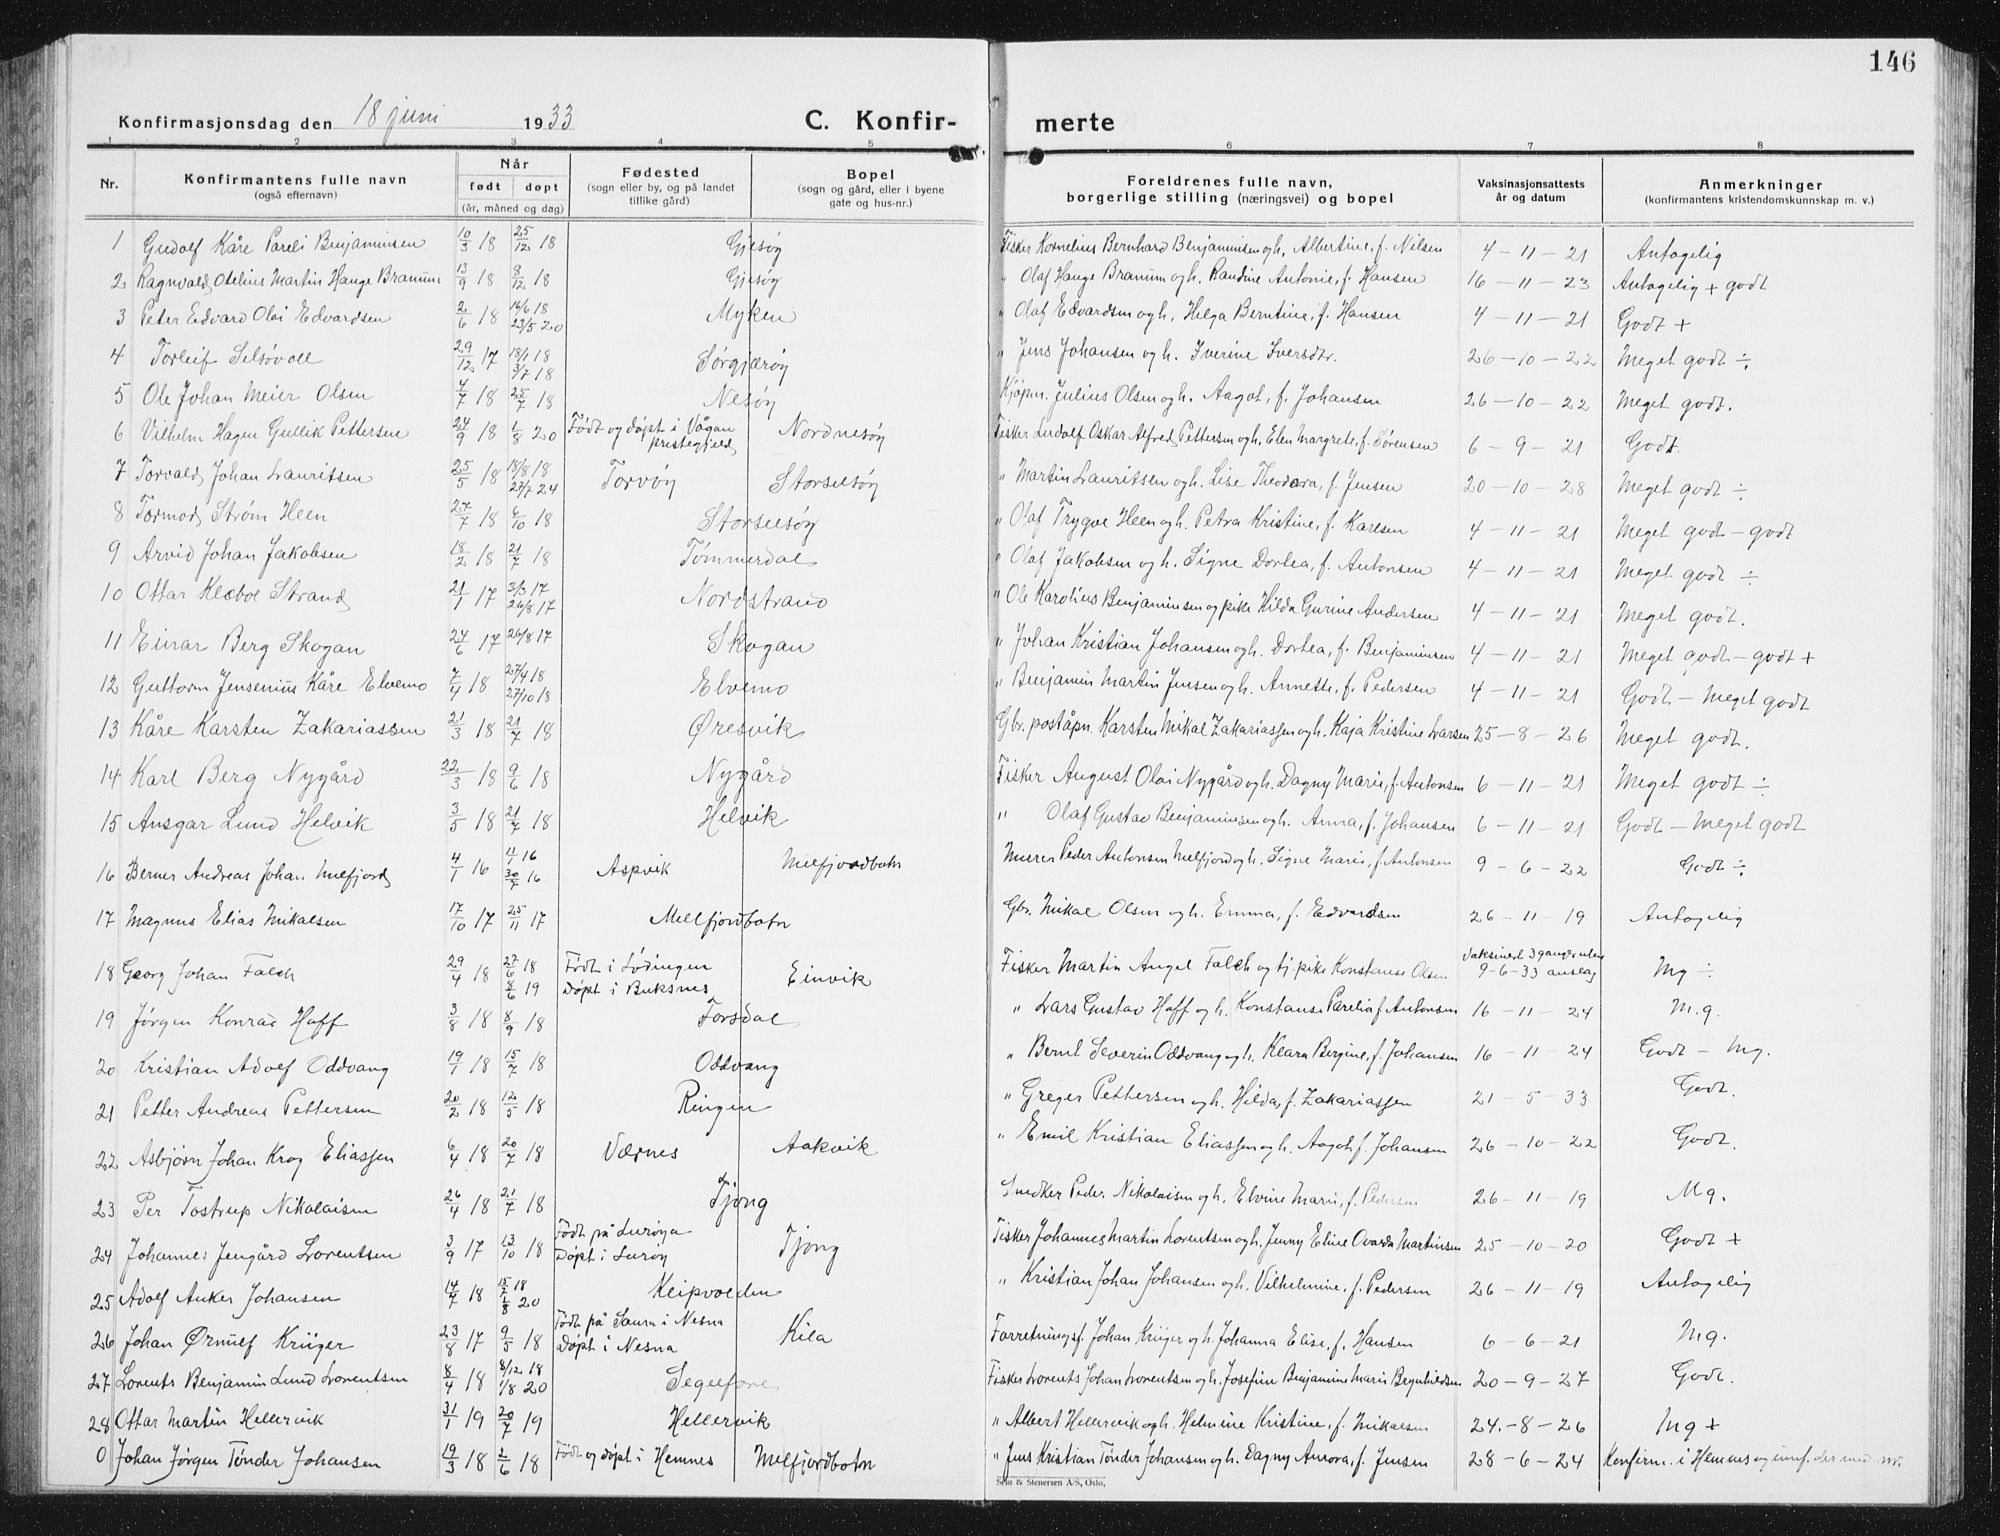 146
Konfirmasjonsdag den 18 juni 1933 C. Konfir- merte
1 2 3 4 5 6 7 8
Nr. Konfirmantens fulle navn (også efternavn) Når født døpt (år, måned og dag) Fødested (sogn eller by, og på landet tillike gård) Bopel (sogn og gård, eller i byene gate og hus-nr.) Foreldrenes fulle navn, borgerlige stilling (næringsvei) og bopel Vaksinasjonsattests år og datum Anmerkninger (konfirmantens kristendomskunnskap m. v.)
1 Gudolf Kåre Pareli Benjaminsen 10/3 18 25/12 18 Gjesøy Fisker Kornelius Bernhard Benjaminsen og h. Albertine, f. Nilsen 4-11-21 Antagelig
2 Ragnvald Otelius Martin Hauge Branum 13/9 18 8/12 18 Gjesøy " Olaf Hauge Branum og h. Randine Antonie, f. Hansen 16-11-23 Antagelig + godt
3 Peter Edvard Olai Edvardsen 2/6 18 16/6 18 23/5 20 Myken " Olaf Edvardsen og h. Helga Berntine, f. Hansen 4-11-21 Godt +
4 Torleif Selsøvoll 29/12 17 18/1 18 3/7 18 Sørgjærøy " Jens Johansen og h. Iverine Iversdtr. 26-10-22 Meget godt ÷
5 Ole Johan Meier Olsen 4/7 18 25/7 18 Nesøy Kjøpm. Julius Olsen og h. Aagot, f. Johansen 26-10-22 Meget godt.
6 Vilhelm Hagen Gullik Pettersen 24/9 18 1/8 20 Født og døpt i Vågan prestegjeld Nordnesøy Fisker Ludolf Oskar Alfred Pettersen og h. Elen Margrete, f. Sørensen 6-9-21 Godt.
7 Torvald Johan Lauritsen 25/5 18 18/8 18 27/7 24 Torvøy Storselsøy " Martin Lauritsen og h. Lise Theodora, f. Jensen 20-10-28 Meget godt ÷
8 Tormod Strøm Heen 27/7 18 6/10 18 Storselsøy " Olaf Trygve Heen og h. Petra Kristine, f. Karlsen 4-11-21 Meget godt - godt
9 Arvid Johan Jakobsen 18/2 18 21/7 18 Tømmerdal " Olaf Jakobsen og h. Signe Dortea, f. Antonsen 4-11-21 Meget godt ÷
10 Ottar Kleboe Strand 21/1 17 3/3 17 26/8 17 Nordstrand " Ole Karolius Benjaminsen og pike Hilda Gurine Andersen 4-11-21 Meget godt.
11 Einar Berg Skogan 24/6 17 26/8 17 Skogan " Johan Kristian Johansen og h. Dortea, f. Benjaminsen 4-11-21 Meget godt - godt +
12 Guttorm Jensenius Kåre Elvemo 7/4 18 27/4 18 27/10 18 Elvemo " Benjamin Martin Jensen og h. Annette, f. Pedersen 4-11-21 Godt - Meget godt
13 Kåre Karsten Zakariassen 21/3 18 21/7 18 Øresvik Gbr. poståpn. Karsten Mikal Zakariassen og h. Kaja Kristine Larsen 25-8-26 Meget godt.
14 Karl Berg Nygård 22/3 18 9/6 18 Nygård Fisker August Olai Nygård og h. Dagny Marie, f. Antonsen 6-11-21 Meget godt ÷
15 Ansgar Lund Helvik 3/5 18 21/7 18 Helvik " Olaf Gustav Benjaminsen og h. Anna, f. Johansen 6-11-21 Godt - Meget godt
16 Berner Andreas Johan Melfjord 4/1 16 4/1 16 30/7 16 Aspvik Melfjordbotn Murer Peder Antonsen Melfjord og h. Signe Marie, f. Antonsen 9-6-22 Godt ÷
17 Magnus Elias Mikalsen 17/10 17 25/11 17 Melfjordbotn Gbr. Mikal Olsen og h. Emma, f. Edvardsen 26-11-19 Antagelig
18 Georg Johan Falch 29/4 18 27/6 18 8/6 19 Født i Lødingen Døpt i Buksnes Einvik Fisker Martin Angel Falch og tj. pike Konstanse Olsen Vaksinert 3 ganger uten anslag 9-6-33 Mg ÷
19 Jørgen Konrad Hoff 3/8 18 8/9 18 Forsdal " Lars Gustav Hoff og h. Konstanse Parelia f. Antonsen 16-11-24 M.g.
20 Kristian Adolf Oddvang 19/1 18 15/7 18 Oddvang " Bernt Severin Oddvang og h. Klara Bergine, f. Johansen 16-11-24 Godt - Mg.
21 Petter Andreas Pettersen 20/2 18 12/5 18 Ringen " Greger Pettersen og h. Hilda, f. Zakariassen 21-5-33 Godt.
22 Asbjørn Johan Krog Eliassen 6/4 18 20/7 18 Værnes Aakvik " Emil Kristian Eliassen og h. Aagot f. Johansen 26-10-22 Godt.
23 Per Tostrup Nikolaisen 26/4 18 21/7 18 Tjong Snedker Peder Nikolaisen og h. Elvine Marie, f. Pedersen 26-11-19 Mg.
24 Johannes Jengård Lorentsen 3/9 17 13/10 18 Født på Lurøya Døpt i Lurøy Tjong Fisker Johannes Martin Lorentsen og h. Jenny Eline Ovarda Martinsen 25-10-20 Godt +
25 Adolf Anker Johansen 14/7 18 15/7 18 1/8 20 Kleipvollen " Kristian Johan Johansen og h. Vilhelmine, f. Pedersen 26-11-19 Antagelig
26 Johan Ørnulf Krüger 23/8 17 9/5 18 Født på Saura i Nesna Døpt i Nesna Kila Forretningsf. Johan Krüger og h. Johanna Elise, f. Hansen 6-6-21 Mg.
27 Lorents Benjamin Lund Lorentsen 8/4 18 8/12 18 1/8 20 Segelfore Fisker Lorents Johan Lorentsen og h. Josefine Benjamine Marie Brynhildsen 20-9-27 Godt.
28 Ottar Martin Hellervik 31/1 19 20/7 19 Hellervik " Albert Hellervik og h. Helmine Kristine, f. Mikalsen 24.-8-26 Mg +
0 Johan Jørgen Tønder Johansen 19/3 18 2/6 18 Født og døpt i Hemnes Melfjordbotn " Jens Kristian Tønder Johansen og h. Dagny Aurora, f. Jensen 28-6-24 Konfirm. i Hemnes og innf. der med nr.
Sem & Stenersen A/S, Oslo.